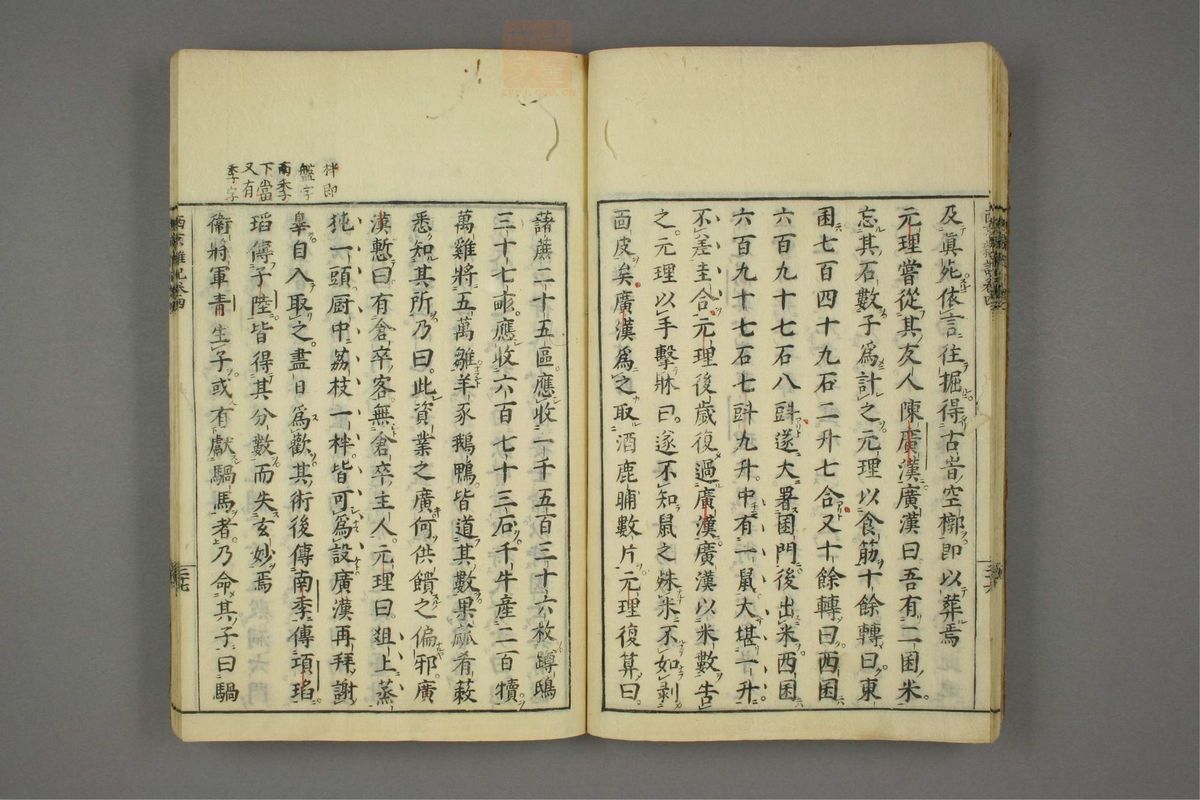 及眞死依言往掘得古昔空槨即以葬焉
元理嘗從其友人陳廣漢廣漢曰吾有二囷米
忘其石數子爲計之元理以食筯十餘轉曰東
囷七百四十九石二升七合又十餘轉曰西囷
六百九十七石八㪷遂大署囷門後出米西囷
六百九十七石七㪷九升中有一鼠大堪一升
不差圭合元理後歲復過廣漢廣漢以米數告
之元理以手擊牀曰遂不知鼠之殊米不如剥
面皮矣廣漢爲之取酒鹿脯數片元理復算曰
藷蔗二十五區應收一千五百三十六枚蹲鴟
三十七畞應收六百七十三石千牛產二百犢
萬雞將五萬雛羊豕鵝鴨皆道其數果蓏肴蔌
悉知其所乃曰此資業之廣何供饋之偏邪廣
漢慙曰有倉卒客無倉卒主人元理曰俎上蒸
㹠一頭厨中荔枝一柈皆可爲設廣漢再拜謝
辠自入取之盡日爲歡其術後傳南季傳項瑫
瑫傳子陸皆得其分數而失玄妙焉
衞將軍青生子或有獻騧馬者乃命其子曰騧
柈即
盤字
南季
下當
又有
季字
西京雜記卷四